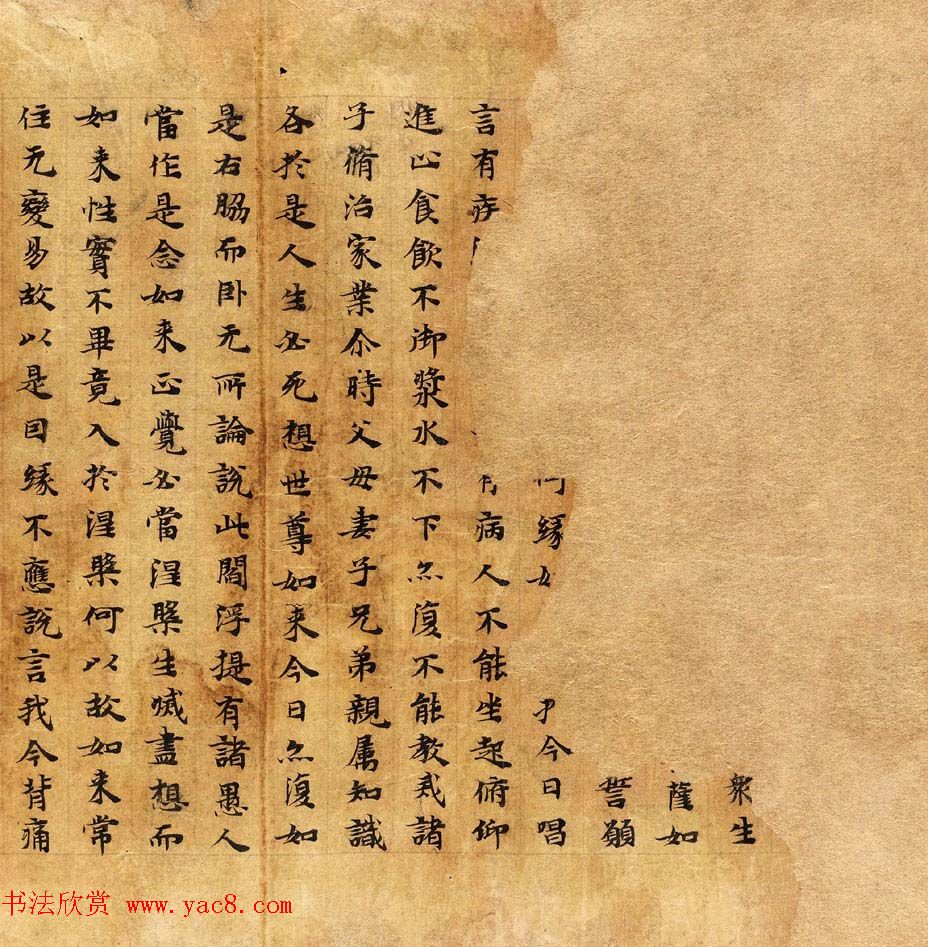 衆生
薩如
誓願
縁 今日唱
言有 病人不能坐起俯仰
進止食飲不御漿水不下亦復不能教戒諸
子脩治家業尒時父母妻子兄弟親属知識
各於是人生必死想世尊如来今日亦復如
是右脇而卧无所論說此閻浮提有諸愚人
當作是念如来正覺必當涅槃生滅盡想而
如来性實不畢竟入於涅槃何以故如来常
住无變易故以是因縁不應說言我今背痛
书法欣赏 www.yac8.com